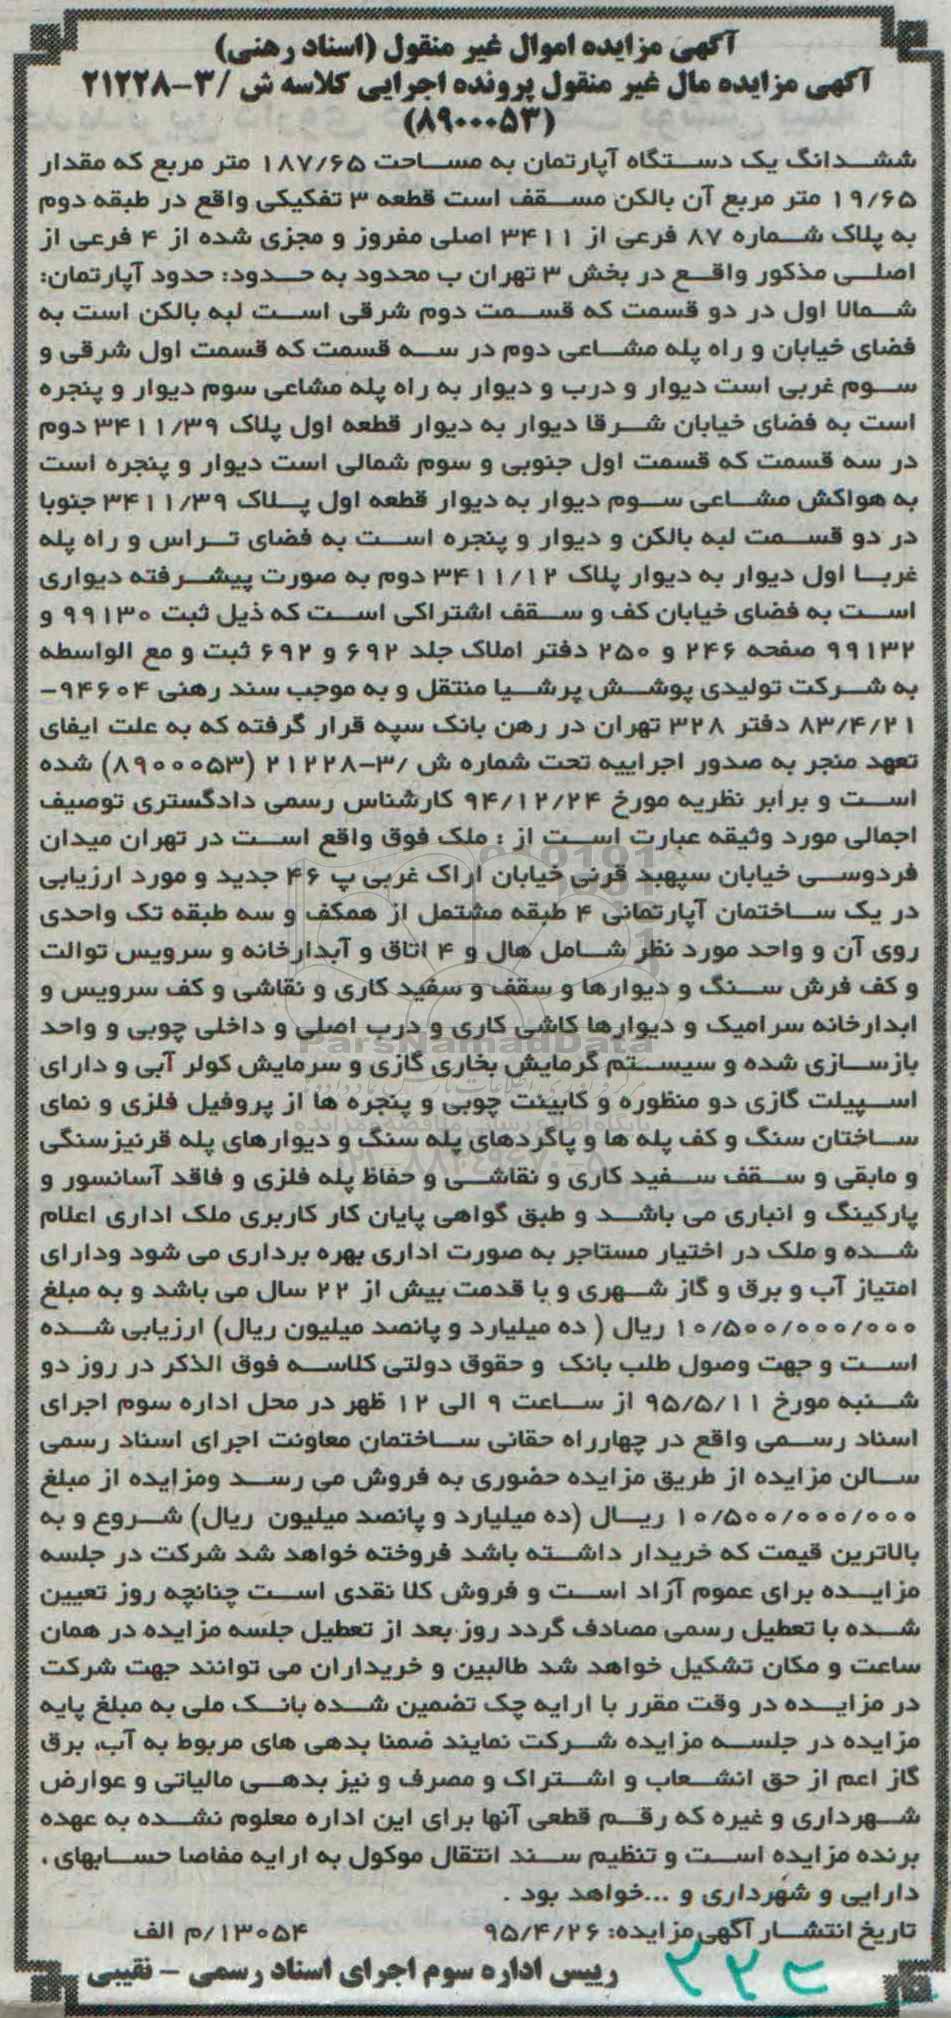 آگهی مزایده اموال غیر منقول (اسناد رهنی)
آگهی مزایده مال غیر منقول پرونده اجرایی کلاسه ش /۳-۲۱۲۲۸
(۸۹۰۰۰۵۳)
ششـدانگ یک دسـتگاه آپارتمان به مسـاحت ۱۸۷/۶۵ متر مربع که مقدار
۱۹/۶۵ متر مربع آن بالکن مسـقف است قطعه ۳ تفکیکی واقع در طبقه دوم
به پلاک شـماره ۸۷ فرعی از ۳۴۱۱ اصلی مفروز و مجزی شده از ۴ فرعی از
اصلـی مذکور واقـع در بخش ۳ تهران ب محدود به حـدود: حدود آپارتمان:
شـمالا اول در دو قسمت که قسـمت دوم شرقی اسـت لبه بالکن است به
فضای خیابان و راه پله مشـاعی دوم در سـه قسمت که قسمت اول شرقی و
سـوم غربی است دیوار و درب و دیوار به راه پله مشاعی سوم دیوار و پنجره
است به فضای خیابان شـرقا دیوار به دیوار قطعه اول پلاک ۳۴۱۱/۳۹ دوم
در سه قسمت که قسمت اول جنوبی و سوم شمالی است دیوار و پنجره است
به هواکش مشـاعی سـوم دیوار به دیوار قطعه اول پـلاک ۳۴۱۱/۳۹ جنوبا
در دو قسـمت لبه بالکن و دیوار و پنجره اسـت به فضای تـراس و راه پله
غربـا اول دیوار به دیوار پلاک ۳۴۱۱/۱۲ دوم به صورت پیشـرفته دیواری
اسـت به فضای خیابان کف و سـقف اشتراکی اسـت که ذیل ثبت ۹۹۱۳۰ و
۹۹۱۳۲ صفحه ۲۴۶ و ۲۵۰ دفتر املاک جلد ۶۹۲ و ۶۹۲ ثبت و مع الواسطه
به شـرکت تولیدی پوشـش پرشـیا منتقل و به موجب سند رهنی ۹۴۶۰۴-
۸۳/۴/۲۱ دفتر ۳۲۸ تهران در رهن بانک سپه قرار گرفته که به علت ایفای
تعهد منجر به صدور اجراییه تحت شماره ش /۳-۲۱۲۲۸ (۸۹۰۰۰۵۳) شده
اسـت و برابر نظریه مورخ ۹۴/۱۲/۲۴ کارشناس رسمی دادگستری توصیف
اجمالی مورد وثیقه عبارت اسـت از : ملک فوق واقع اسـت در تهران میدان
فردوسـی خیابان سپهبد قرنی خیابان اراک غربی پ ۴۶ جدید و مورد ارزیابی
در یک سـاختمان آپارتمانی ۴ طبقه مشتمل از همکف و سه طبقه تک واحدی
روی آن و واحد مورد نظر شـامل هال و ۴ اتاق و آبدارخانه و سرویس توالت
و کف فرش سـنگ و دیوارها و سقف و سفید کاری و نقاشی و کف سرویس و
ابدارخانه سرامیک و دیوارها کاشی کاری و درب اصلی و داخلی چوبی و واحد
بازسـازی شده و سیسـتم گرمایش بخاری گازی و سرمایش کولر آبی و دارای
اسـپیلت گازی دو منظوره و کابینت چوبی و پنجره ها از پروفیل فلزی و نمای
سـاختان سنگ و کف پله ها و پاگردهای پله سنگ و دیوارهای پله قرنیزسنگی
و مابقی و سـقف سـفید کاری و نقاشـی و حفاظ پله فلزی و فاقد آسانسور و
پارکینگ و انباری می باشـد و طبق گواهی پایان کار کاربری ملک اداری اعلام
شـده و ملک در اختیار مستاجر به صورت اداری بهره برداری می شود ودارای
امتیاز آب و برق و گاز شـهری و با قدمت بیش از ۲۲ سال می باشد و به مبلغ
۱۰/۵۰۰/۰۰۰/۰۰۰ ریال ( ده میلیارد و پانصد میلیون ریال) ارزیابی شـده
اسـت و جهت وصول طلب بانک و حقوق دولتی کلاسـه فوق الذکر در روز دو
شـنبه مورخ ۹۵/۵/۱۱ از سـاعت ۹ الی ۱۲ ظهر در محل اداره سوم اجرای
اسناد رسـمی واقع در چهارراه حقانی سـاختمان معاونت اجرای اسناد رسمی
سـالن مزایده از طریق مزایده حضوری به فروش می رسـد ومزایده از مبلغ
۱۰/۵۰۰/۰۰۰/۰۰۰ ریـال (ده میلیارد و پانصد میلیون ریال) شـروع و به
بالاترین قیمت که خریدار داشـته باشد فروخته خواهد شد شرکت در جلسه
مزایـده برای عموم آزاد اسـت و فروش کلا نقدی اسـت چنانچه روز تعیین
شـده با تعطیل رسمی مصادف گردد روز بعد از تعطیل جلسه مزایده در همان
ساعت و مکان تشکیل خواهد شد طالبین و خریداران می توانند جهت شرکت
در مزایـده در وقت مقرر با ارایه چک تضمین شـده بانـک ملی به مبلغ پایه
مزایده در جلسـه مزایده شـرکت نمایند ضمنا بدهی های مربوط به آب، برق
گاز اعم از حق انشـعاب و اشـتراک و مصرف و نیز بدهـی مالیاتی و عوارض
شـهرداری و غیره که رقـم قطعی آنها برای این اداره معلوم نشـده به عهده
برنده مزایده اسـت و تنظیم سـند انتقال موکول به ارایه مفاصا حسـابهای ،
دارایی و شهرداری و ...خواهد بود .
تاریخ انتشـار آگهی مزایده: ۹۵/۴/۲۶ ۱۳۰۵۴/م الف
رییس اداره سوم اجرای اسناد رسمی - نقیبی
ParsNamadData